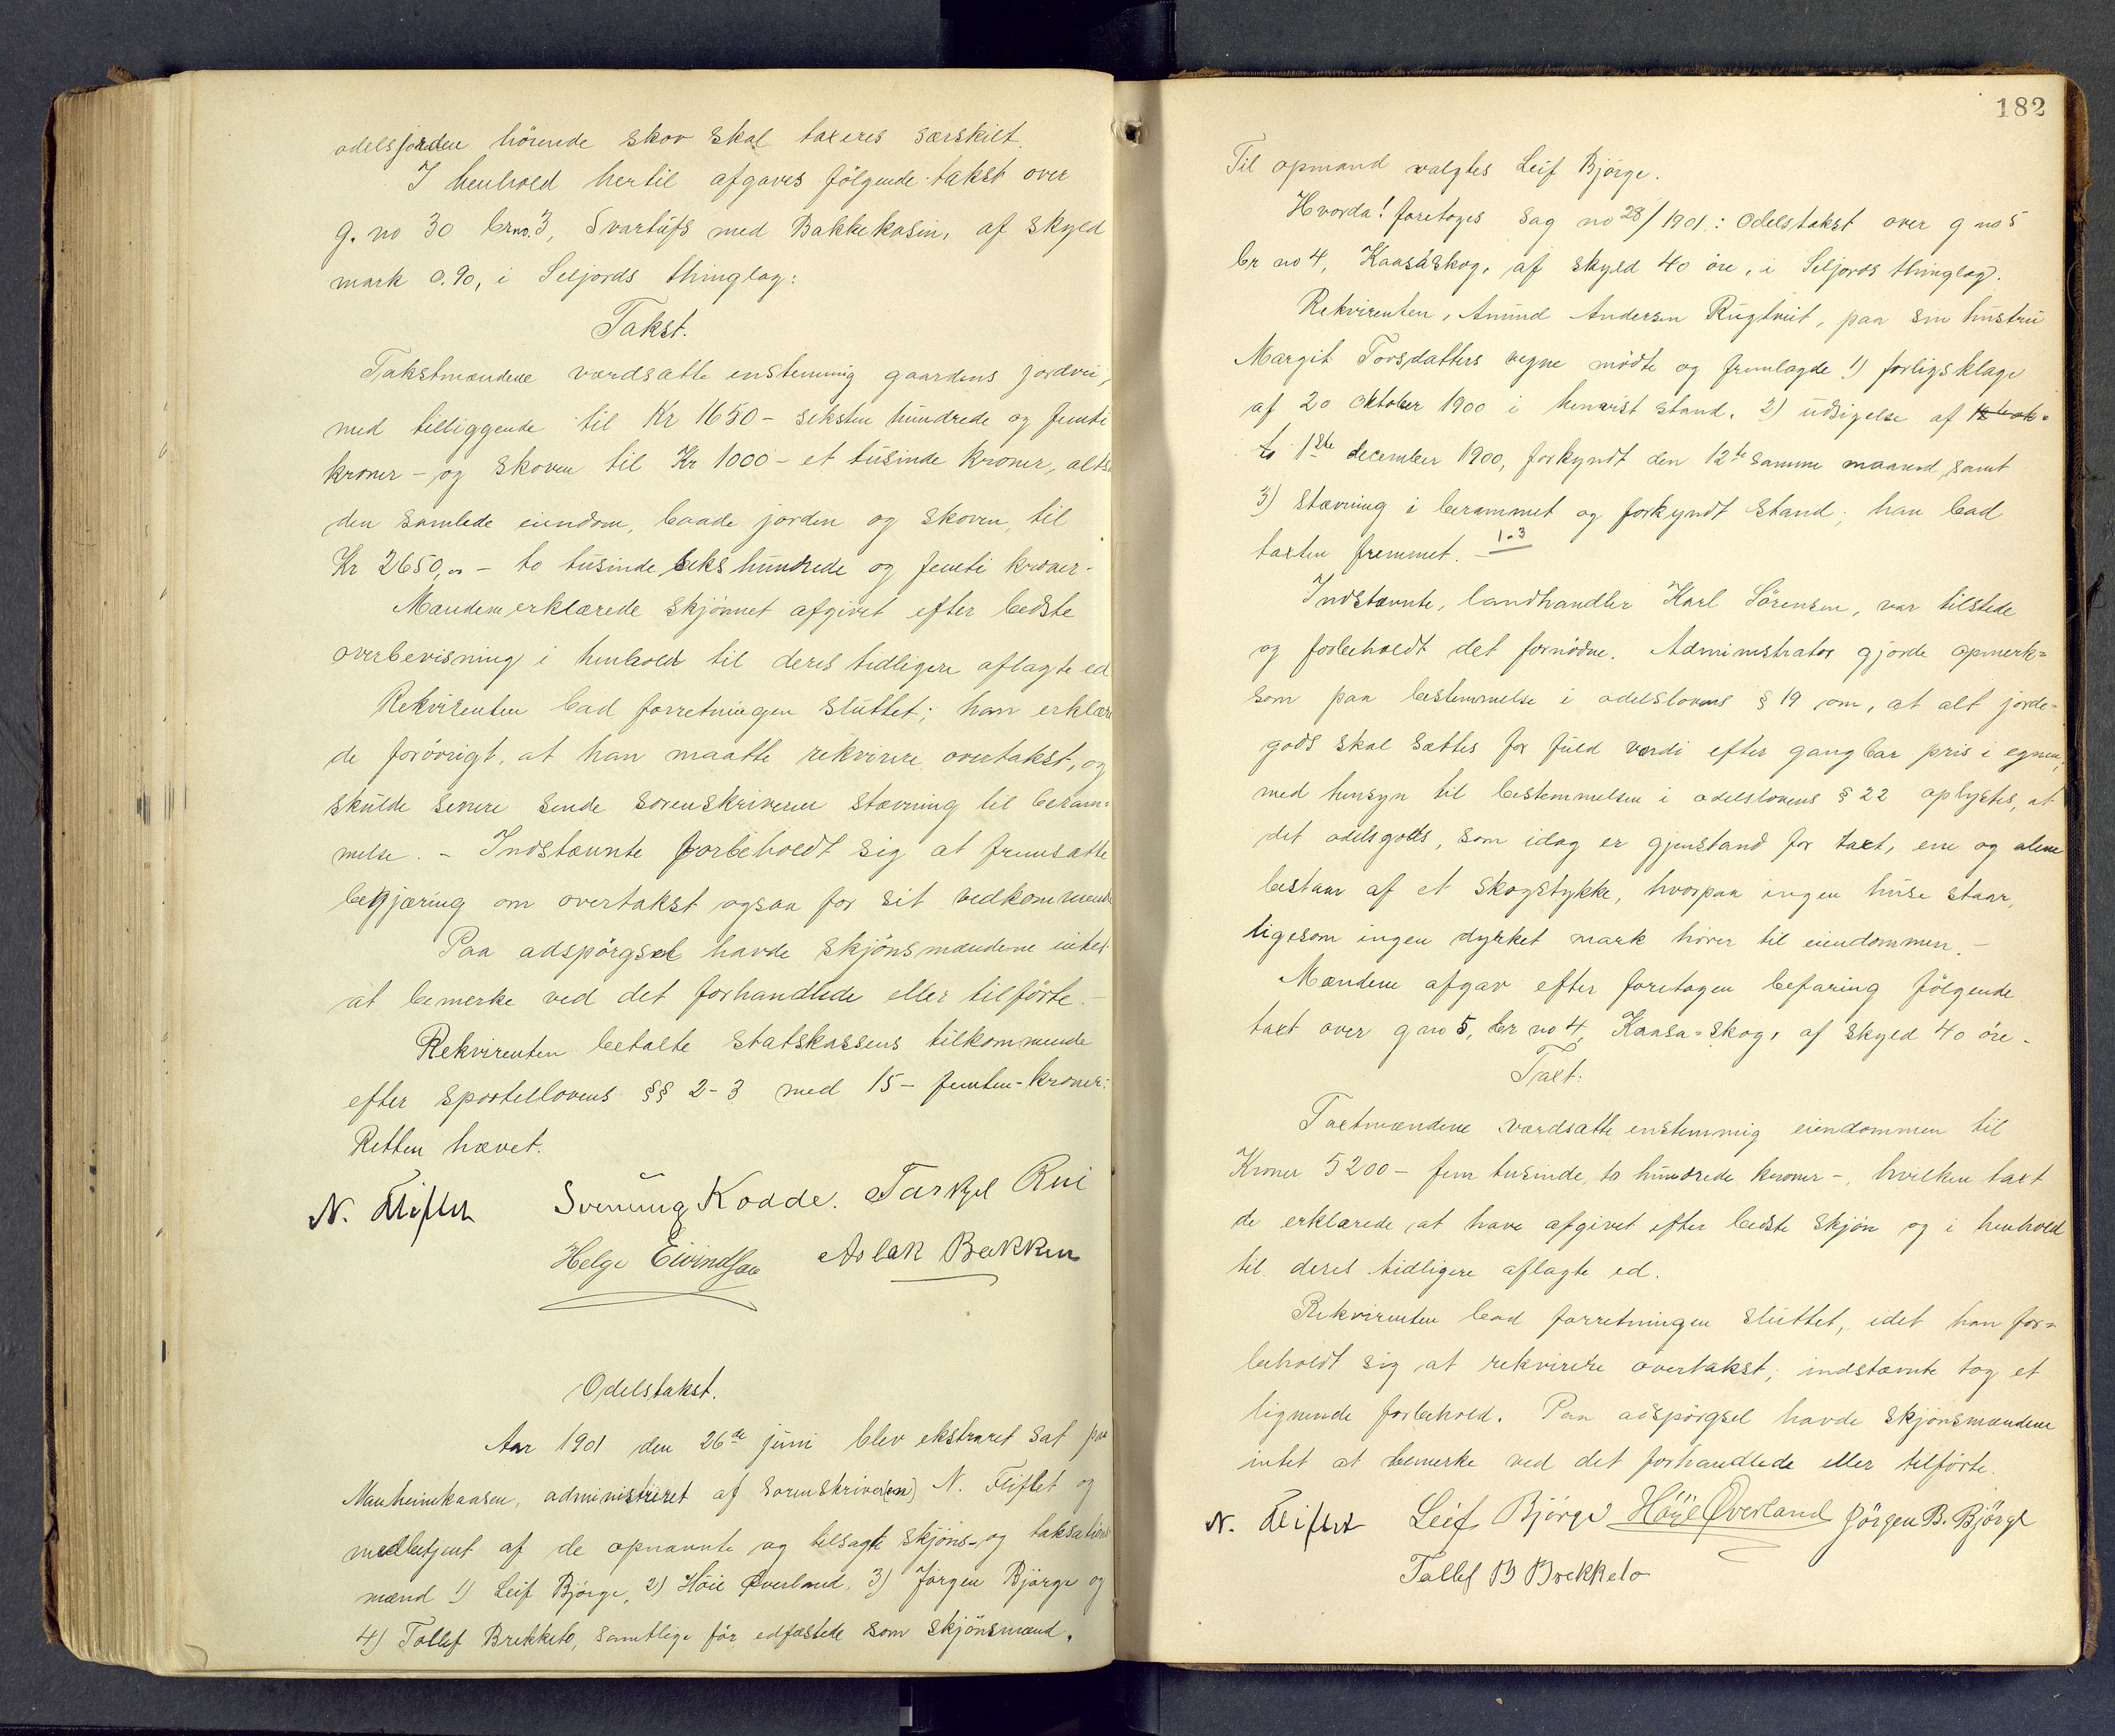 odelsjorden hörende skov skal taxeres særskilt.
I henhold hertil afgaves fölgende takst over
g. no 30 brno. 3, Svartufs med Bakkekasin, af skyld
mark 0.90, i Seljords thinglag:
Takst.
Takstmændene værdsatte enstemmig gaardens jordvei,
med tilliggende til Kr 1650 - seksten hundrede og femti
kroner - og skoven til Kr 1000 - et tusinde kroner, altsaa
den samlede eiendom, baade jorden og skoven, til
Kr 2650,00 - to tusinde seks hundrede og femti kroner -
Mændene erklærede skjönnet afgivet efter bedste
overbevisning i henhold til deres tidligere aflagte ed
Rekvirenten bad forretningen sluttet; han erklære
de forövrigt, at han maatte rekvirere overtakst, og
skulde senere sende sorenskriveren stævning til beram=
melse. - Indstævnte forbeholdt sig at fremsætte
begjæring om overtakst ogsaa for sit vedkommende
Paa adspörgsel havde skjönsmændene intet
at bemerke ved det forhandlede eller tilförte. -
Rekvirenten betalte statskassens tilkommende
efter sportellovens §§ 2-3 med 15 - femten - kroner.
Retten hævet.
N. Fliflet Svenung Kodde. Tarkjel Rui
Helge Eivindsen Aslak Bakken
Odelstakst.
Aar 1901 den 26de juni blev ekstraret sat paa
Manheimkaasen, administreret af sorenskriver(en) N. Fliflet og
medbetjent af de opnævnte og tilsagte skjöns- og taksations
mænd 1) Leif Björge, 2) Höie Överland, 3) Jörgen Björge og
4) Tollef Brekketo, samtlige för edfæstede som skjönsmænd.
182
Til opmand valgtes Leif Björge.
Hvorda! foretoges sag no 28/1901: Odelstakst over g no 5
br no 4, Kaasáskog, af skyld 40 öre, i Seljords thinglag.
Rekvirenten, Amund Andersen Rugtveit, paa sin hustru
Margit Torsdatters vegne mödte og fremlagde 1) forligsklage
af 20 oktober 1900 i henvist stand, 2) udsigelse af
1ste december 1900, forkyndt den 12te samme maaned, samt
3) stævning i berammet og forkyndt stand; han bad
taxten fremmet. - 1-3
Indstævnte, landhandler Karl Sörensen, var tilstede
og forbeholdt det fornödne. Administrator gjorde opmerk=
som paa bestemmelse i odelslovens § 19 om, at alt jorde=
gods skal sættes for fuld værdi efter gangbar pris i egnen;
med hensyn til bestemmelsen i odelslovens § 22 oplystes, at
det odelsgods, som idag er gjenstand for taxt, ene og alene
bestaar af et skogstykke, hvorpaa ingen huse staar,
ligesom ingen dyrket mark hörer til eiendommen. -
Mændene afgav efter foretagen befaring fölgende
taxt over g no 5, br no 4, Kaasa=skog, af skyld 40 öre -
Taxt.
Taxtmændene værdsatte enstemmig eiendommen til
Kroner 5200 - fem tusinde, to hundrede kroner -, hvilken taxt
de erklærede at have afgivet efter bedste skjön og i henhold
til deres tidligere aflagte ed.
Rekvirenten bad forretningen sluttet, idet han for=
beholdt sig at rekvirere overtakst; indstævnte tog et
lignende forbehold. Paa adspörgsel havde skjönsmændene
intet at bemerke ved det forhandlede eller tilförte.
N. Fliflet Leif Björge Höye Överland Jörgen B. Björge
Tollef B Brekketo